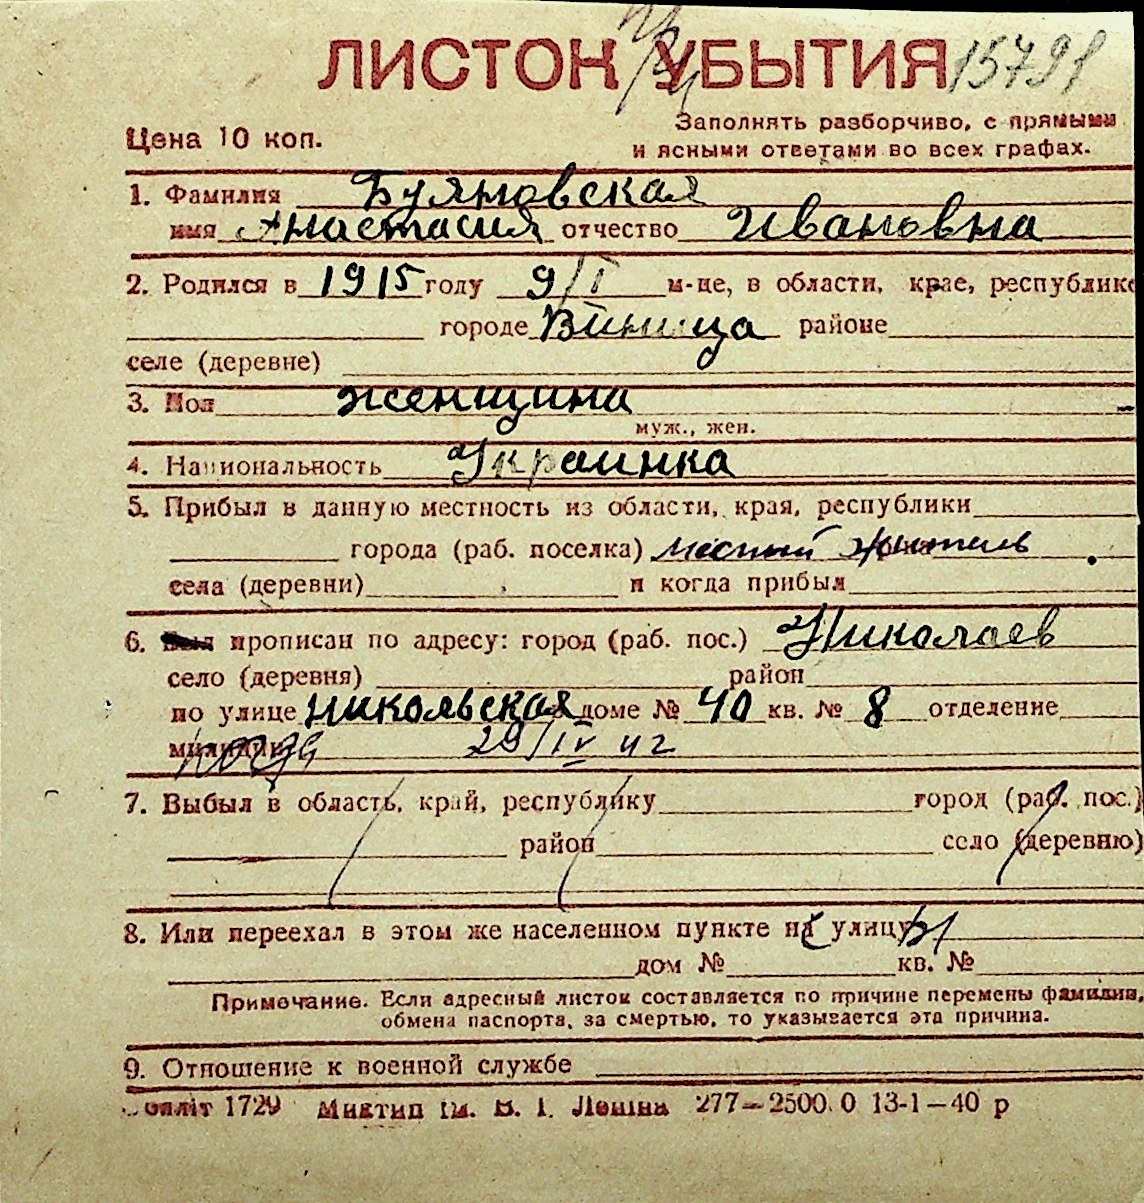 ЛИСТОК УБЫТИЯ 15791
Цена 10 коп.
Заполнять разборчиво, с прямыми
и ясными ответами во всех графах.
1. Фамилия Буяновская
имя Анастасия отчество Ивановна
2. Родился в 1915 году 9/I м-це, в области, крае, республике
городе Виница районе
селе (деревне)
3. Пол женщина
муж., жен.
4. Национальность Украинка
5. Прибыл в данную местность из области, края, республики
города (раб. поселка) местный житель
села (деревни) и когда прибыл
6. Был прописан по адресу: город (раб. пос.) Николаев
село (деревня) район
по улице Никольская доме № 40 кв. № 8 отделение
милиции когда 29/IV 42
7. Выбыл в область, край, республику город (раб. пос.)
район село (деревню)
8. Или переехал в этом же населенном пункте на улицу
дом № кв. №
Примечание. Если адресный листок составляется по причине перемены фамилии,
обмена паспорта, за смертью, то указывается эта причина.
9. Отношение к военной службе
1729 Миктип ім. В. І. Леніна 277—2500.0 13-1—40 р